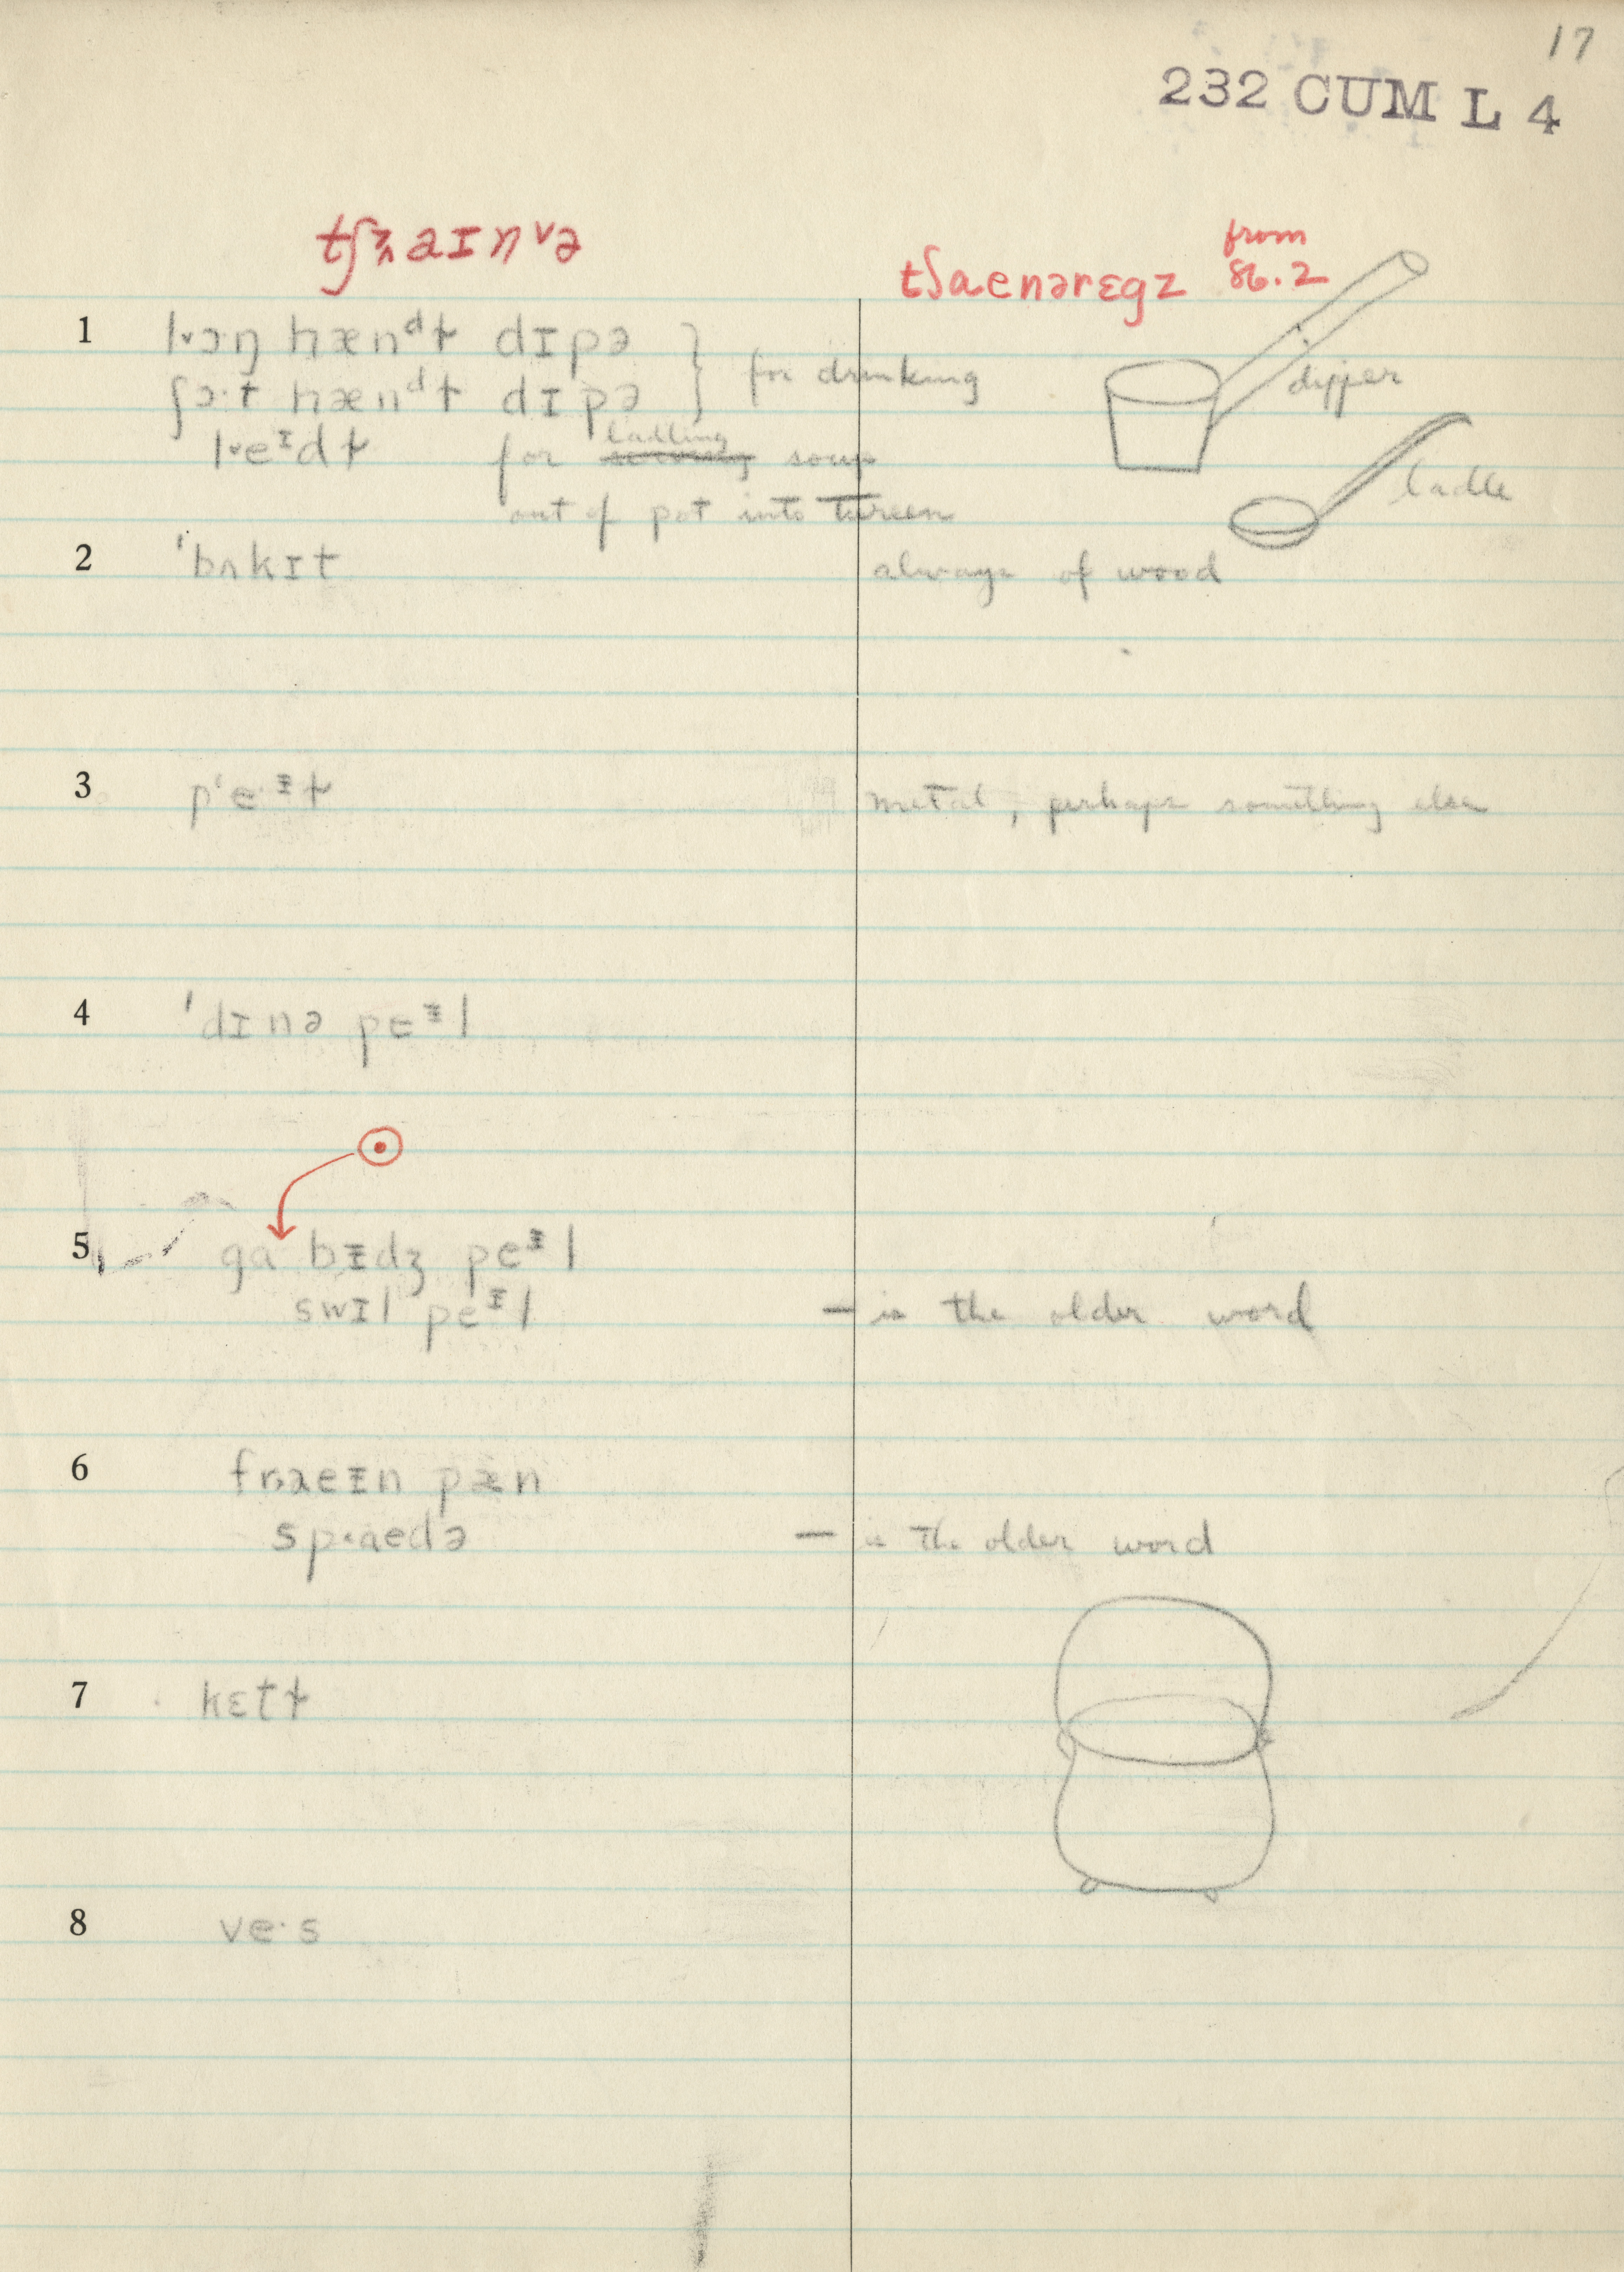 17
232 CUM L 4
tʃɜᴧaɪnᵛə
tʃaenərɛgz from 86.2
1 lɔŋ hænᵈɫ dɪpə
ʃɔ·t hænᵈɫ dɪpə } for drinking
dipper
leᶦdɫ for ladling soup
out of pot into tureen
ladle
2 ˈbʌkɪt always of wood
3 pʻe·ᵻɫ metal, perhaps something else
4 ˈdɪnə peᵻl
5 gabᵻdʒ peᵻl
swɪl peᵻl — is the older word
6 fraeᵻn pæn
spaedə — is the older word
7 kɛtɫ
8 ve·s